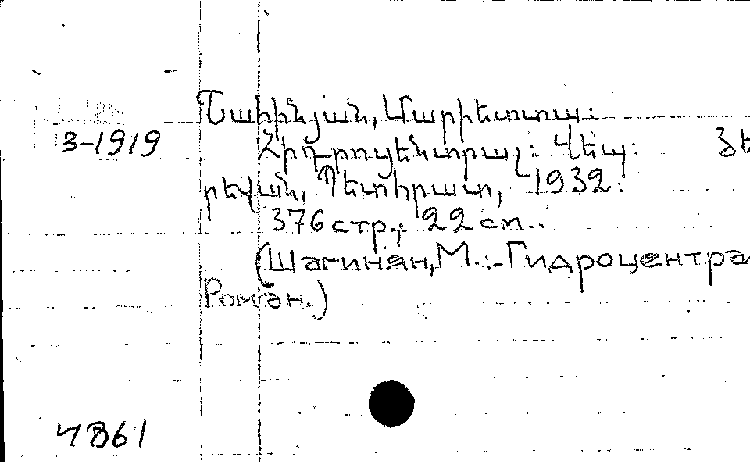 Շահինյան, Մարիետտա:
3-1919 Հիդրոցենտրալ: Վեպ: Յե
րեվան, Պետհրատ, 1932.
376 стр.; 22 см..
(Шагинян, М.:-Гидроцентра
Роман.)
4861